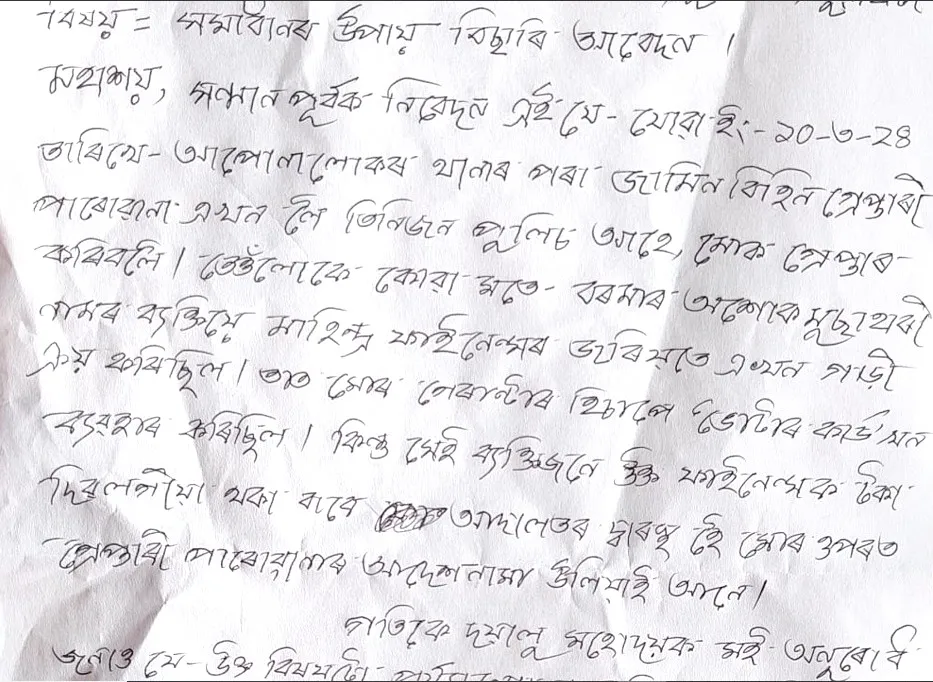 বিষয় = সমাধানৰ উপায় বিচাৰি আবেদন ।
মহাশয়, সন্মান পূৰ্বক নিবেদন এই যে- যোৱা ইং:-২০-৩-২৪
তাৰিখে- আপোনালোকৰ থানাৰ পৰা জামিন বিহিন গ্ৰেপ্তাৰী
পাৰোৱানা এখন লৈ তিনিজন পুলিচ আহে, মোক গ্ৰেপ্তাৰ-
কৰিবলৈ । তেওঁলোকে কোৱা মতে- বৰমাৰ অশোক মুছাহাৰী
নামৰ ব্যক্তিয়ে মাহিন্দ্ৰ ফাইনেন্সৰ জৰিয়তে এখন গাড়ী
ক্ৰয় কৰিছিল । তাত মোৰ গেৰান্টাৰ হিচাপে ভোটাৰ কাৰ্ড খন
ব্যৱহাৰ কৰিছিল । কিন্তু সেই ব্যক্তিজনে উক্ত ফাইনেন্সক টকা
দিবলগীয়া থকা বাবে আদালতৰ দ্বাৰস্থ হৈ মোৰ ওপৰত
গ্ৰেপ্তাৰী পাৰোৱানাৰ আদেশনামা উলিয়াই আনে ।
গতিকে দয়ালু মহোদয়ক মই অনুৰোধ
জনাও যে- উক্ত বিষয়টো